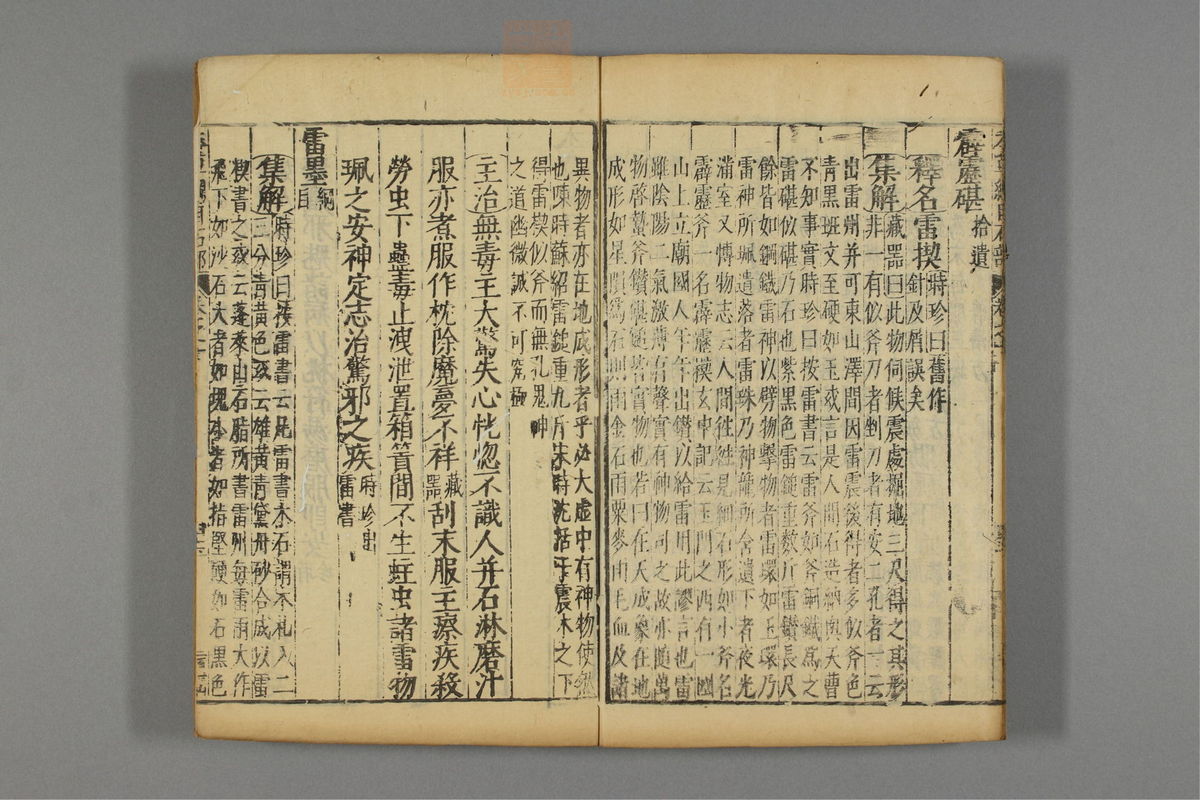 霹靂碪拾遺
釋名雷楔時珍曰舊作
針及屑誤矣
集解藏器曰此物伺候震處掘地三尺得之其形
非一有似斧刀者剉刀者有安二孔者一云
出雷州并河東山澤間因雷震後得者多似斧色
青黑班文至硬如玉或言是人間石造納與天曹
不知事實時珍曰按雷書云雷斧如斧銅鐵爲之
雷碪似碪乃石也紫黑色雷鎚重數斤雷鑽長尺
餘皆如鋼鐵雷神以劈物擊物者雷環如玉環乃
雷神所珮遺落者雷珠乃神龍所含遺下者夜光
滿室又博物志云人間徃徃見細石形如小斧名
霹靂斧一名霹靂楔玄中記云玉門之西有一國
山上立廟國人年年出鑽以給雷用此謬言也雷
雖陰陽二氣激薄有聲實有神物司之故亦隨萬
物啓蟄斧鑽鎚皆實物也若曰在天成象在地
成形如星隕爲石則雨金石雨粟麥雨毛血及諸
異物者亦在地成形者乎必大虛中有神物使然
也陳時蘇紹雷鎚重九斤宋時沈括于震木之下
得雷楔似斧而無孔鬼神
之道幽微誠不可究極
主治無毒主大驚失心恍惚不識人并石淋磨汁
服亦煮服作枕除魔夢不祥藏器刮末服主瘵疾殺
勞虫下蠱毒止洩泄置箱篢間不生蛀虫諸雷物
珮之安神定志治驚邪之疾時珍出
雷書
雷墨綱目
集解時珍曰按雷書云凡雷書木石謂木札入二
三分青黄色或云雄黄青黛丹砂合成以雷
楔書之或云蓬萊山石脂所書雷州每雷雨大作
飛下如沙石大者如塊小者如指堅硬如石黑色